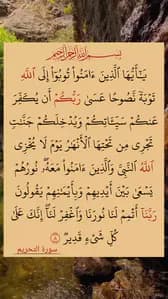 بِسْمِ ٱللَّهِ ٱلرَّحْمَٰنِ ٱلرَّحِيمِ
يَٰٓأَيُّهَا ٱلَّذِينَ ءَامَنُوا۟ تُوبُوٓا۟ إِلَى ٱللَّهِ
تَوْبَةً نَّصُوحًا عَسَىٰ رَبُّكُمْ أَن يُكَفِّرَ
عَنكُمْ سَيِّـَٔاتِكُمْ وَيُدْخِلَكُمْ جَنَّٰتٍ
تَجْرِى مِن تَحْتِهَا ٱلْأَنْهَٰرُ يَوْمَ لَا يُخْزِى
ٱللَّهُ ٱلنَّبِىَّ وَٱلَّذِينَ ءَامَنُوا۟ مَعَهُۥ نُورُهُمْ
يَسْعَىٰ بَيْنَ أَيْدِيهِمْ وَبِأَيْمَٰنِهِمْ يَقُولُونَ
رَبَّنَآ أَتْمِمْ لَنَا نُورَنَا وَٱغْفِرْ لَنَآ إِنَّكَ عَلَىٰ
كُلِّ شَىْءٍ قَدِيرٌ ٨
سورة التحريم